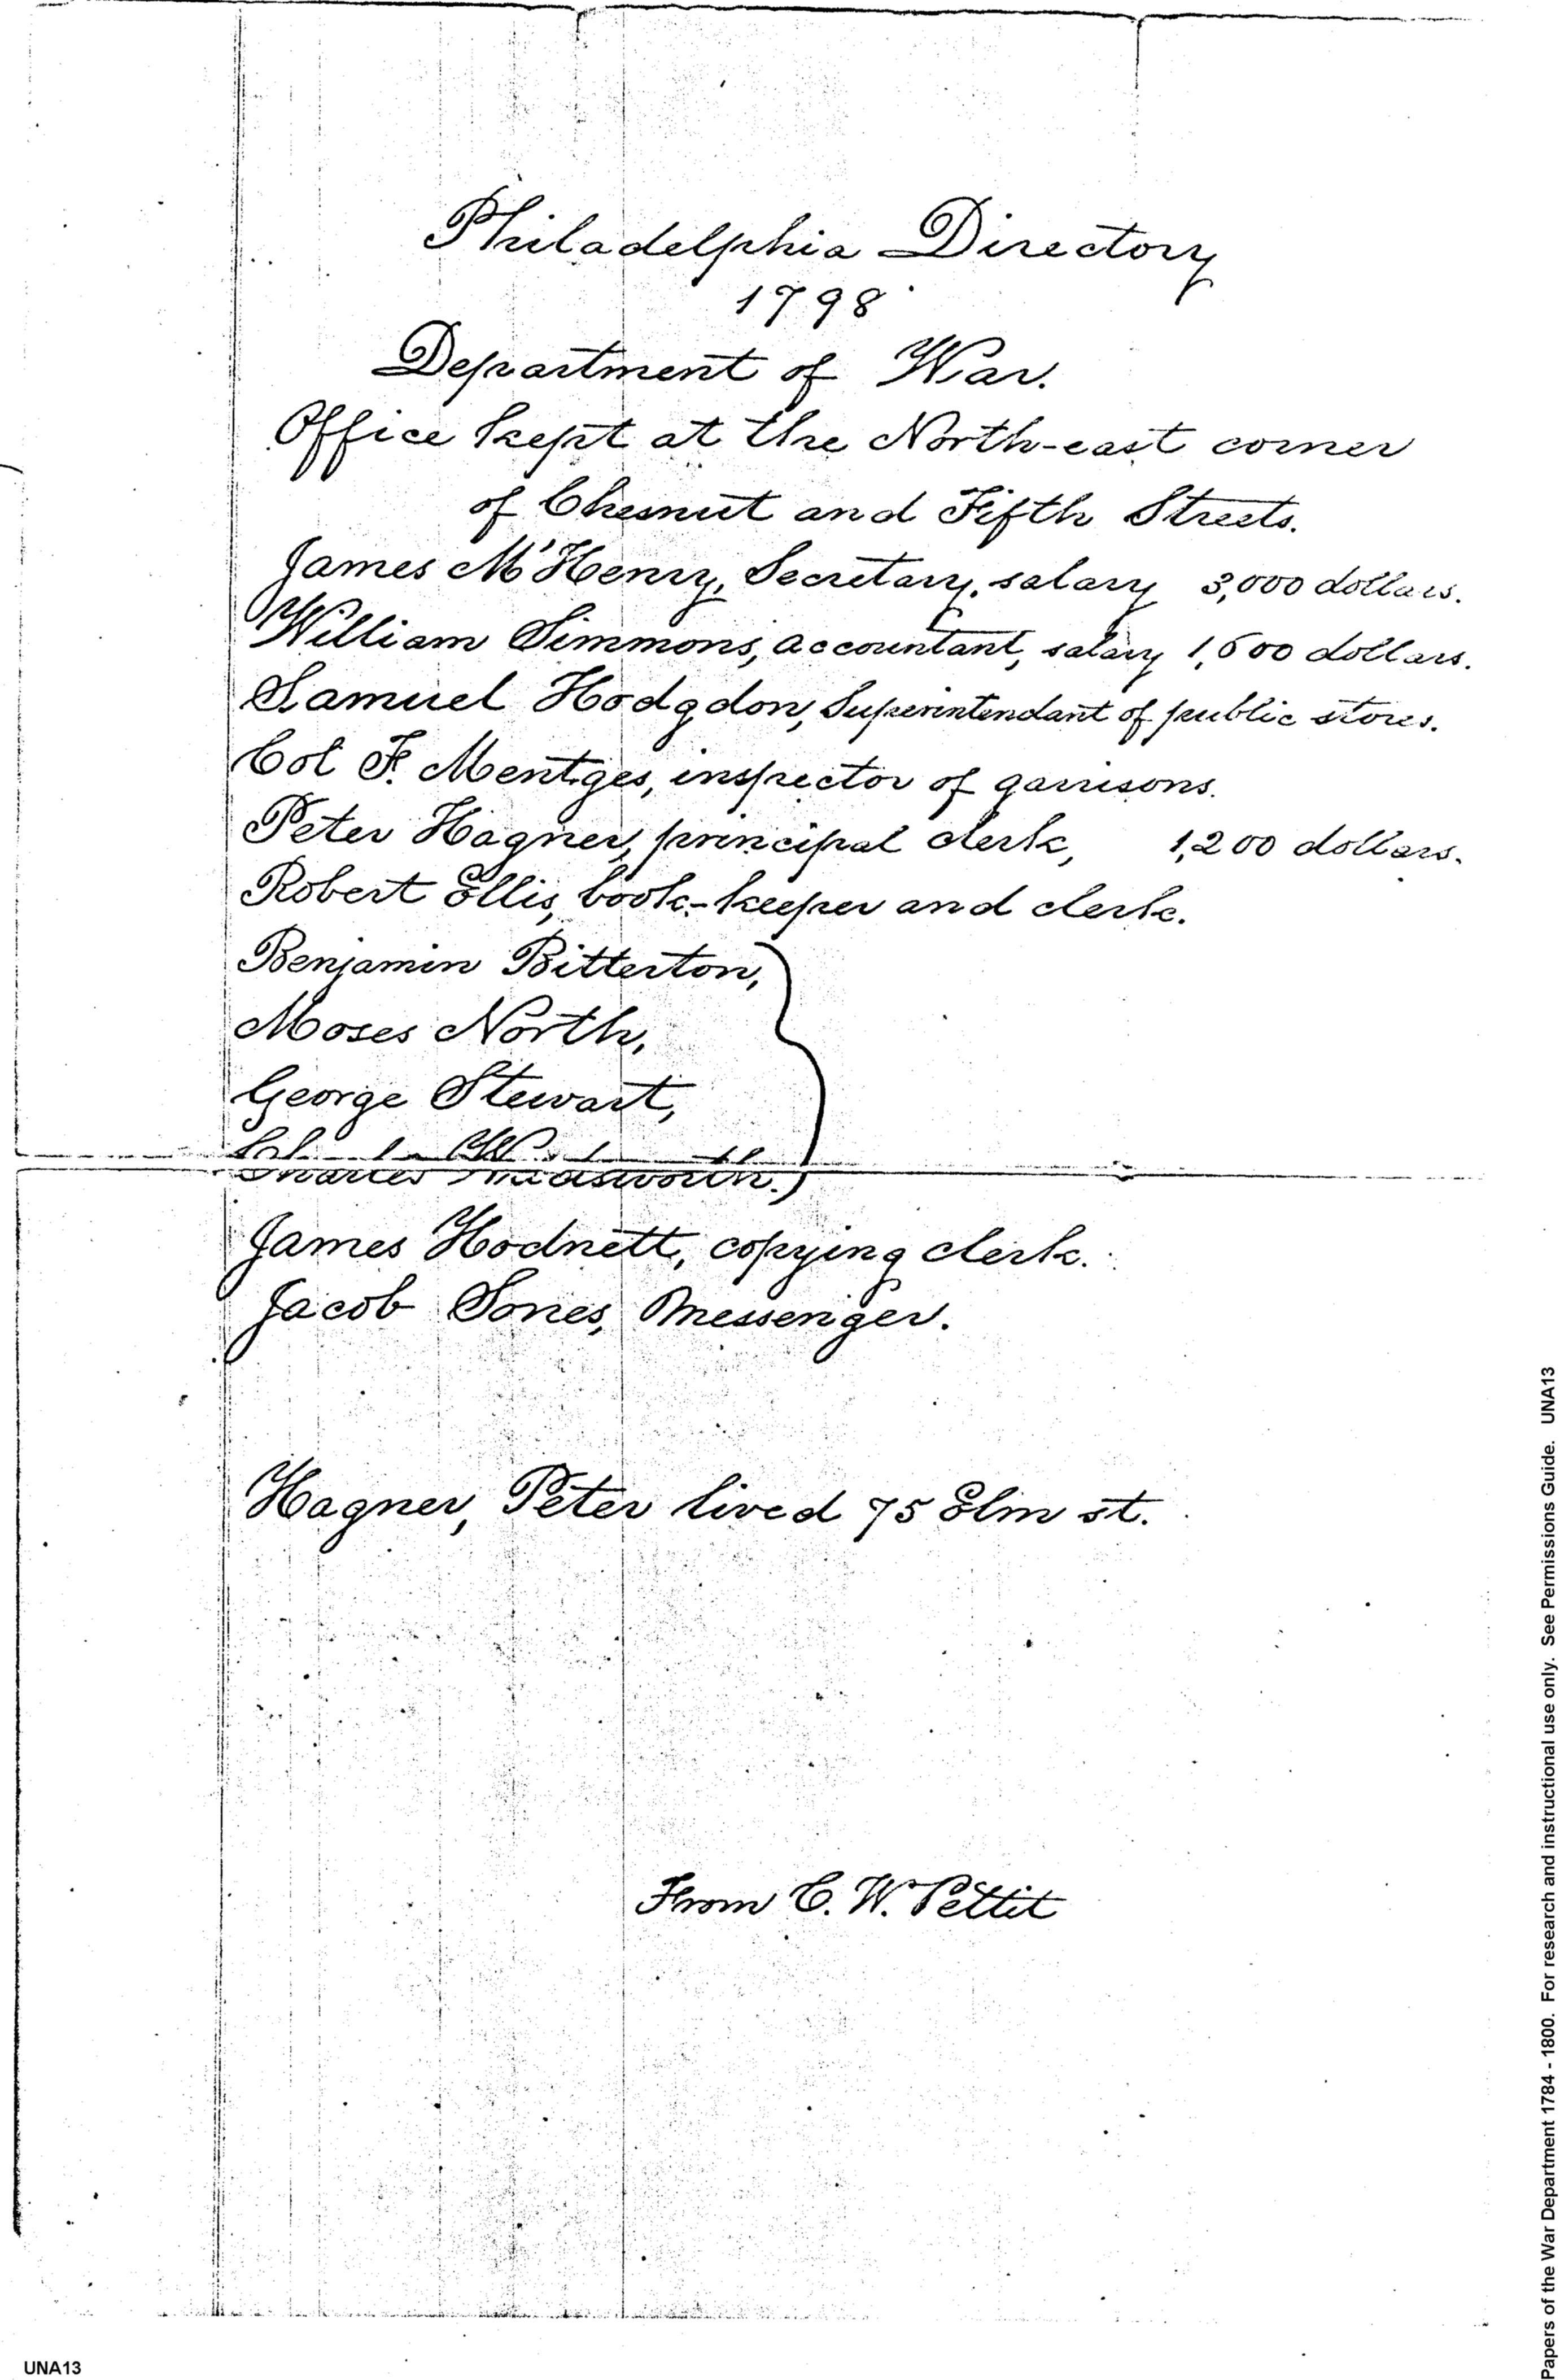 Philadelphia Directory
1798
Department of War.
Office kept at the North-east corner
of Chesnut and Fifth Streets.
James Mc'Henry, Secretary, salary 3,000 dollars.
William Simmons, accountant, salary 1,600 dollars.
Samuel Hodgdon, Superintendant of public stores.
Col F. Mentges, inspector of garrisons.
Peter Hagner, principal clerk, 1,200 dollars.
Robert Ellis, book-keeper and clerk.
Benjamin Bitterton,
Moses North,
George Stewart,
Charles Wadsworth.
James Hodnett, copying clerk.
Jacob Sones, Messenger.
Hagner, Peter lived 75 Elm st.
From C. W. Pettit
UNA13
Papers of the War Department 1784 - 1800. For research and instructional use only. See Permissions Guide. UNA13